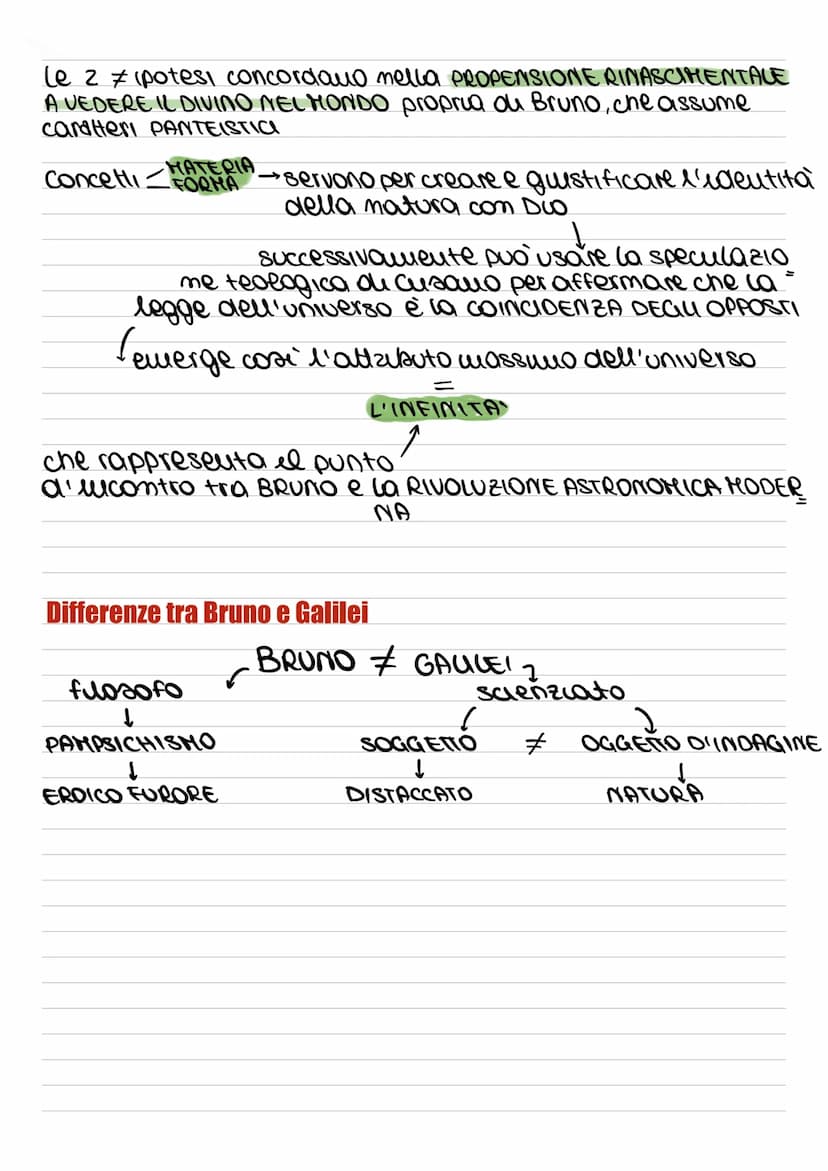 Le 2 ≠ ipotesi concordano nella PROPENSIONE RINASCIMENTALE
A VEDERE IL DIVINO NEL MONDO propria di Bruno, che assume
caratteri PANTEISTICI
Concetti < MATERIA
FORMA → servono per creare e giustificare l'identità
della natura con Dio
↓
successivamente può usare la speculazio=
ne teologica di Cusano per affermare che la
legge dell'universo è la COINCIDENZA DEGLI OPPOSTI
↓ emerge così l'attributo massimo dell'universo
=
L'INFINITA'
che rappresenta il punto ↗
d'incontro tra BRUNO e la RIVOLUZIONE ASTRONOMICA MODER=
NA
Differenze tra Bruno e Galilei
BRUNO ≠ GALILEI
filosofo scienziato
↓
PAMPSICHISMO SOGGETTO ≠ OGGETTO D'INDAGINE
↓ ↓ ↓
EROICO FURORE DISTACCATO NATURA